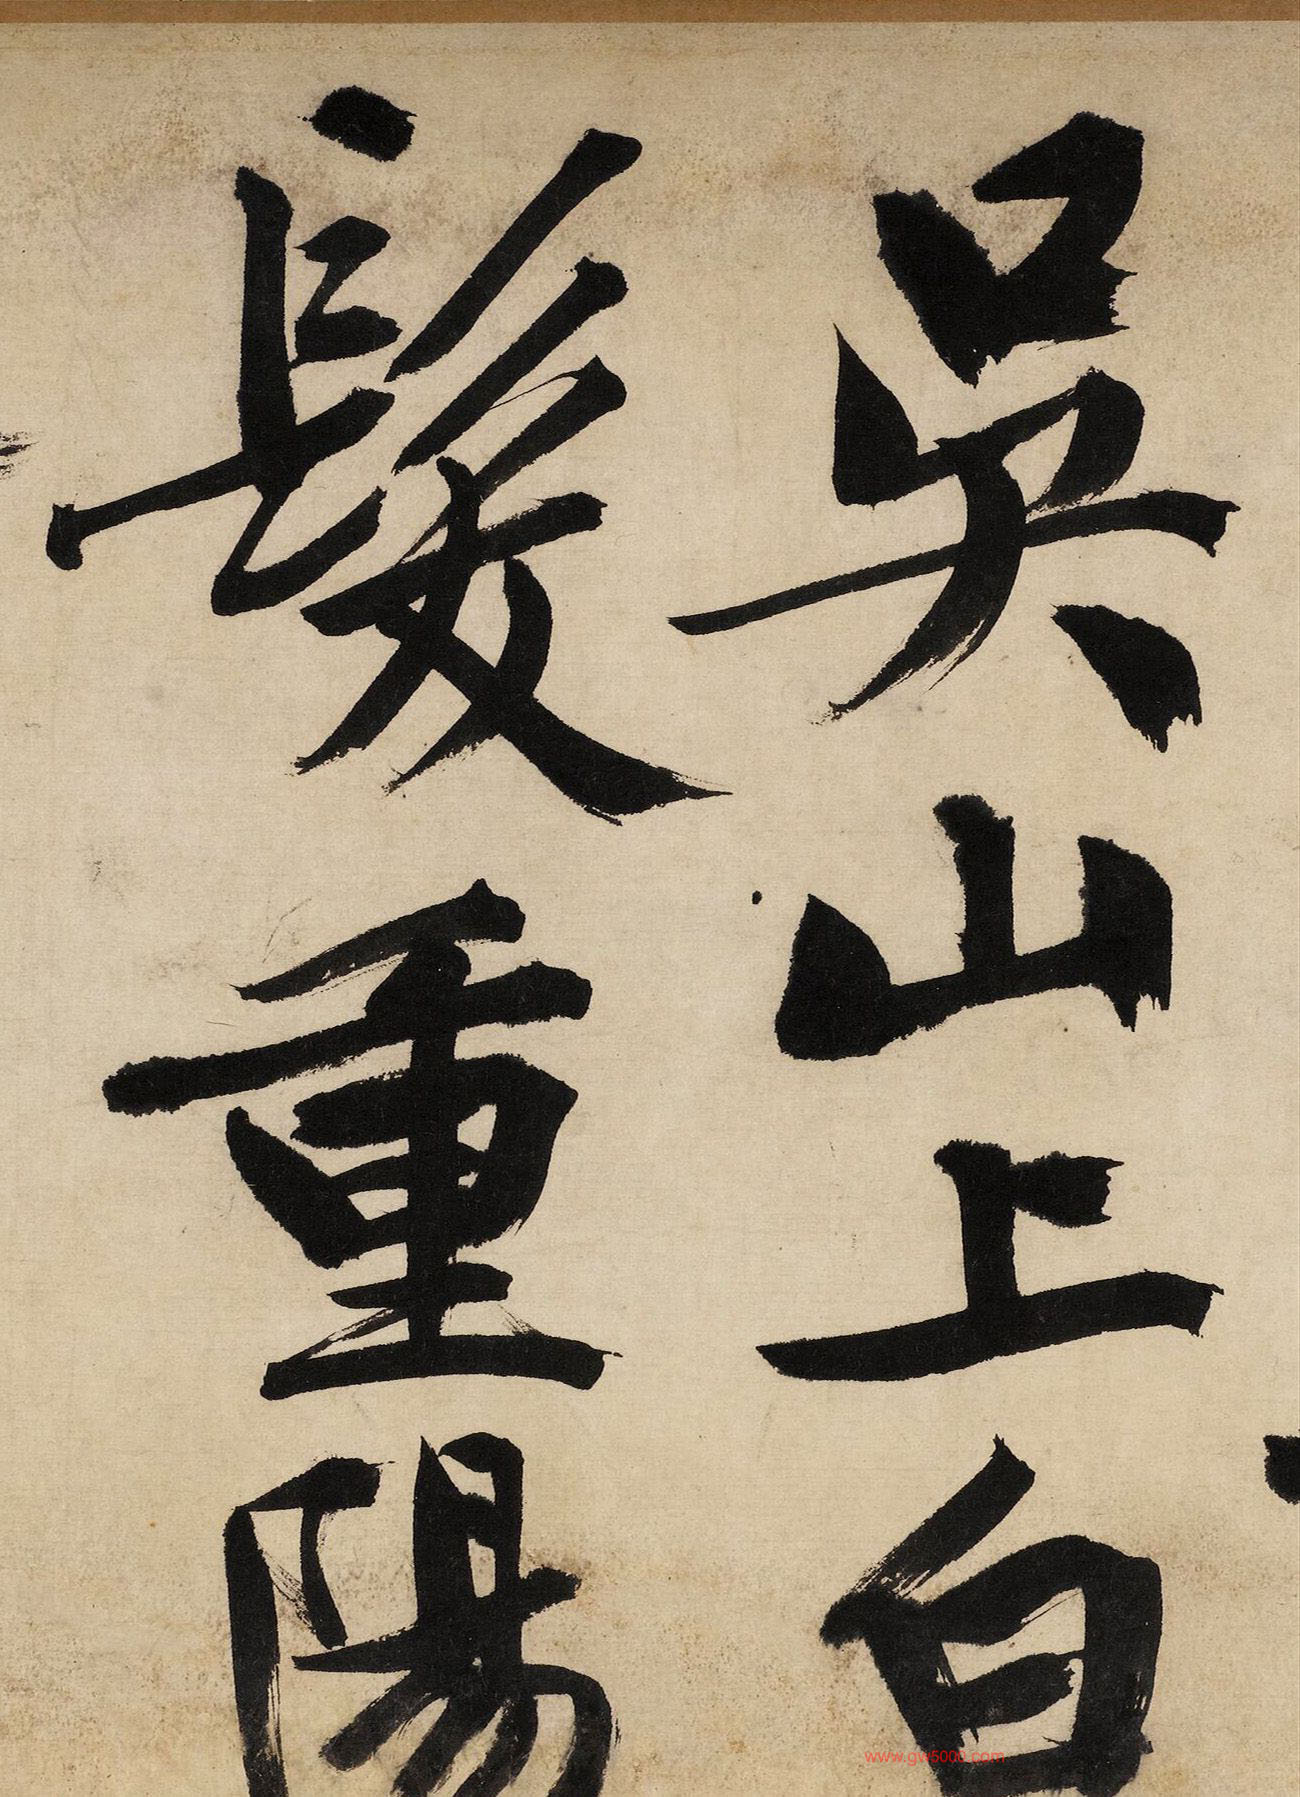 吳山上白
髮重陽
www.gw5000.com